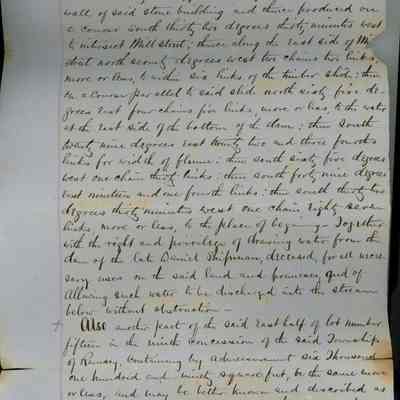 wall of said stone building and thence produced on
a course south thirty two degrees thirty minutes west
to intersect Mill street; thence along the East side of Mill
street north seventy degrees west two chains two links,
more or less, to within six links of the timber slide; then
on a course parallel to said slide north sixty five de-
grees East four chains five links, more or less, to the water
at the East side of the bottom of the dam; then South
twenty nine degrees east twenty two and three fourths
links for width of flume; then south sixty five degrees
west one chain thirty links; then south forty nine degrees
east nineteen and one fourth links; then south thirty two
degrees thirty minutes west one chain Eighty seven
links, more or less, to the place of beginning — Together
with the right and privilege of drawing water from the
dam of the late Daniel Shipman, deceased, for all neces-
sary uses on the said land and premises, and of
Allowing such water to be discharged into the stream
below without obstruction —
Also another part of the said East half of lot number
fifteen in the ninth concession of the said Township
of Ramsay, containing by admeasurement six Thousand
one hundred and ninety square feet, be the same more
or less, and may be better known and described as